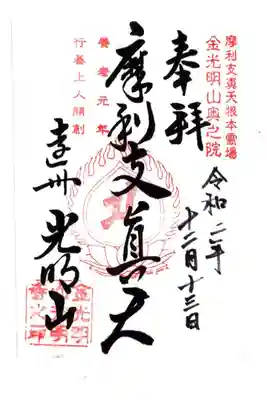 摩利支真天根本霊場
金光明山奥之院
奉拝
令和二年
十二月十三日
摩利支真天
養老元年
行善上人開創
遠州 光明山